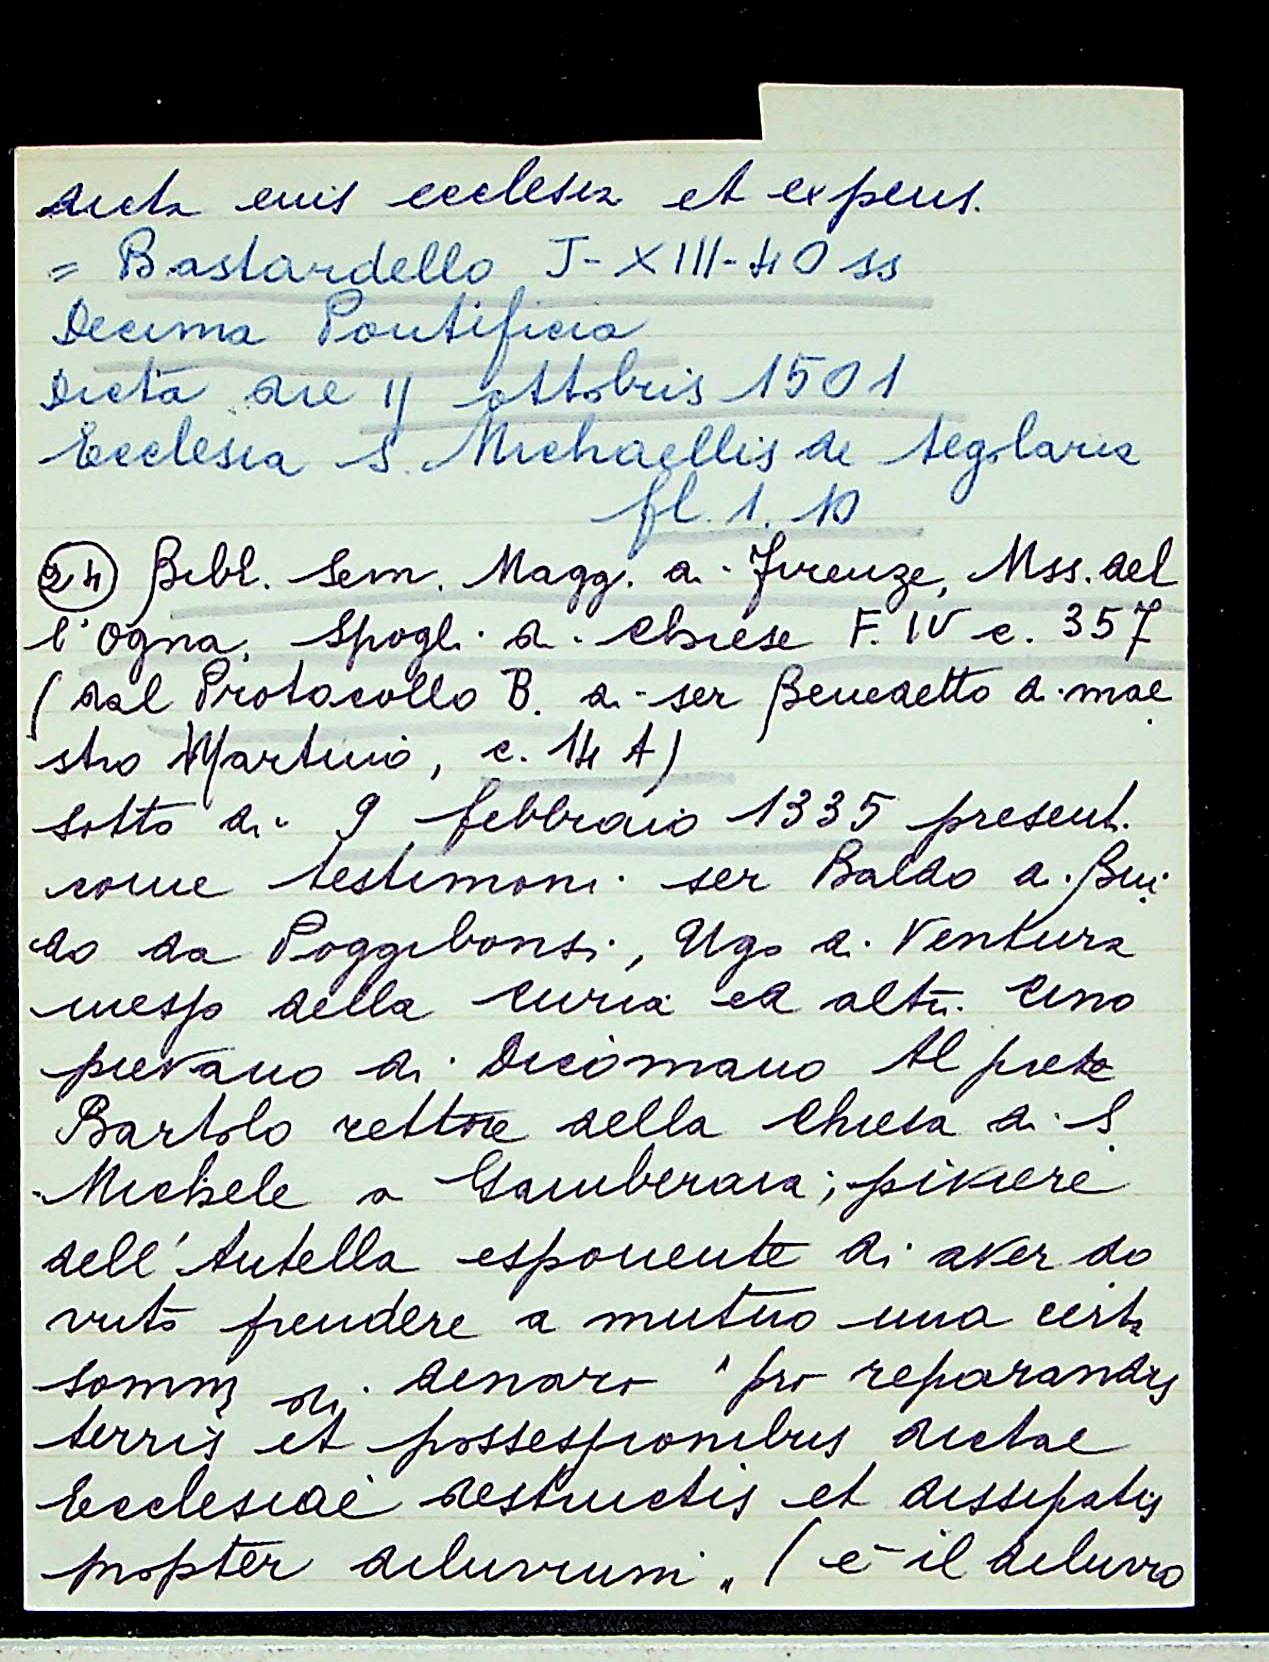 dicta eius ecclesia et expens.
= Bastardello J-XIII-40 ss
Decima Pontificia
Dicta die 11 ottobris 1501
Ecclesia S. Michaellis de Tegolaria
fl. 1. 10
(24) Bibl. Sem. Magg. di Firenze, Mss. del
l'Ogna. Spogli di Chiese F. IV c. 357
(dal Protocollo B. di ser Benedetto di mae
stro Martino, c. 14 A)
sotto di 9 febbraio 1335 present.
come testimoni ser Baldo di Gui
do da Poggibonsi, Ugo di Ventura
messo della curia ed altri. Cino
pievano di Dicomano Al prete
Bartolo rettore della Chiesa di S.
Michele a Gamberaia; piviere
dell'Antella esponente di aver do
vuto prendere a mutuo una certa
somma di denaro "pro reparandis
terris et possessionibus dictae
Ecclesiae destructis et dissipatis
propter diluvium" (è il diluvio